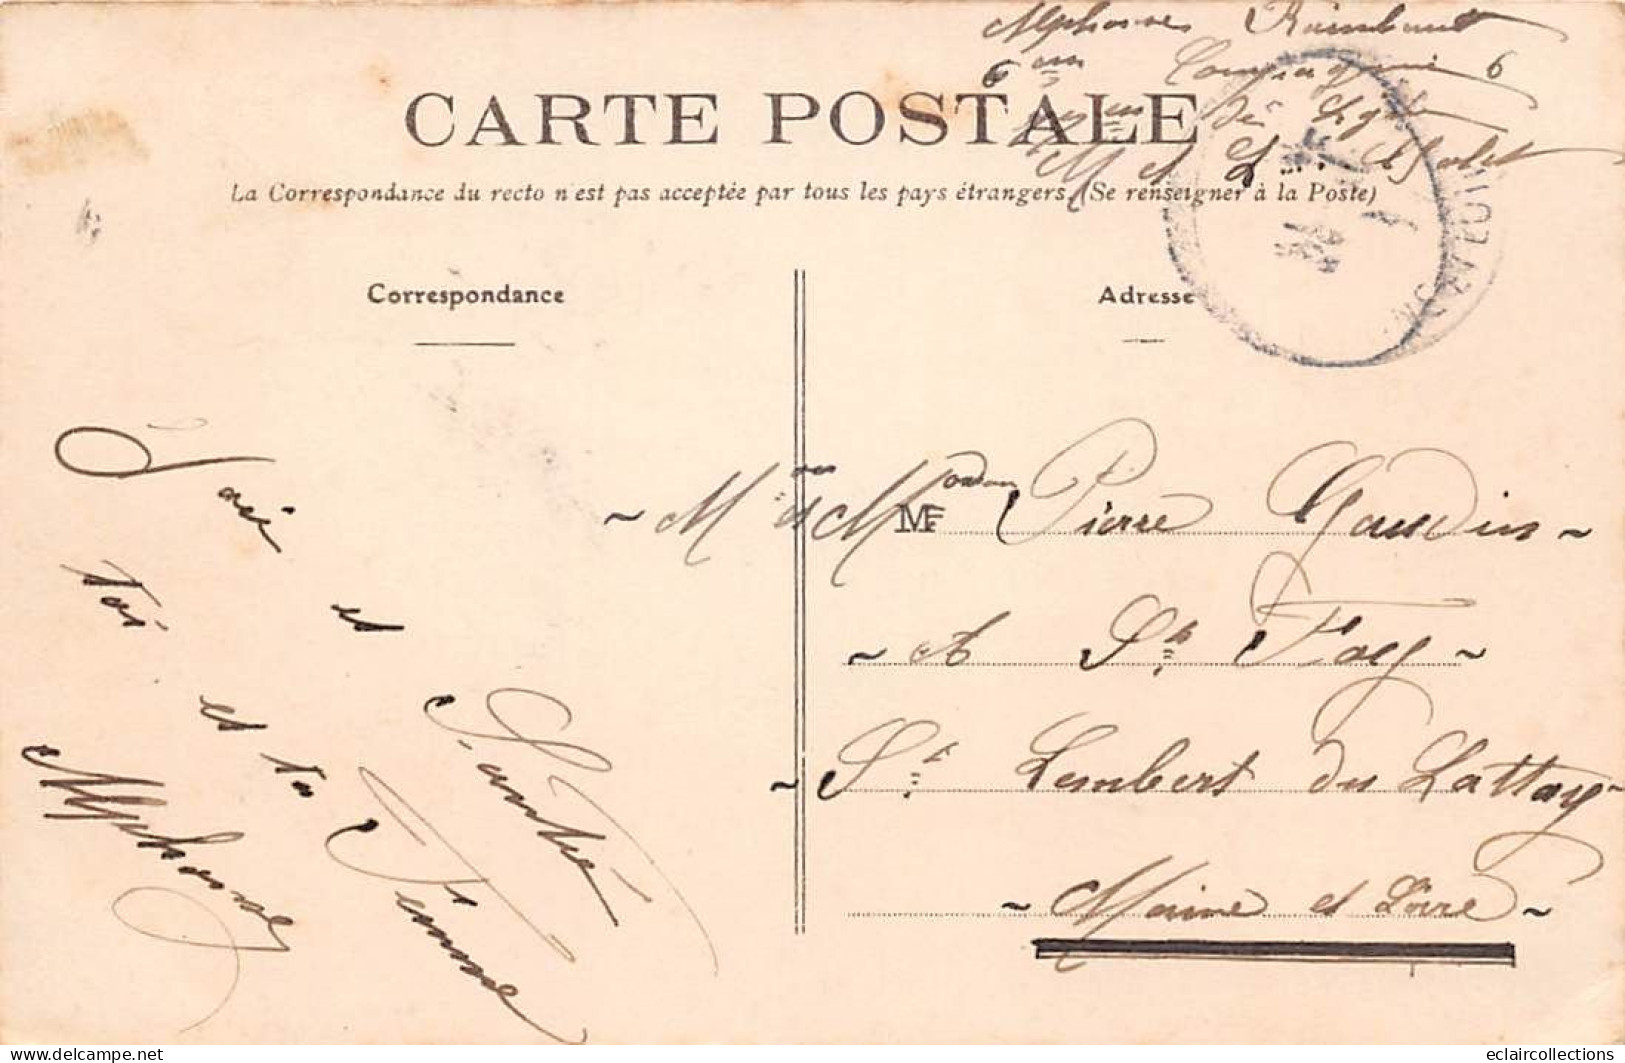 Alphonse Rimbault
6em Compagnie 6
de Lg
M et L. Cholet
CARTE POSTALE
La Correspondance du recto n'est pas acceptée par tous les pays étrangers (Se renseigner à la Poste)
Correspondance
Adresse
Joie et Santé
toi et ta Femme
Alphonse
~ Mr et M Pierre Gaudin ~
~ A Ste Foy ~
~ St Lambert du Lattay ~
~ Maine et Loire ~
eclaircollections